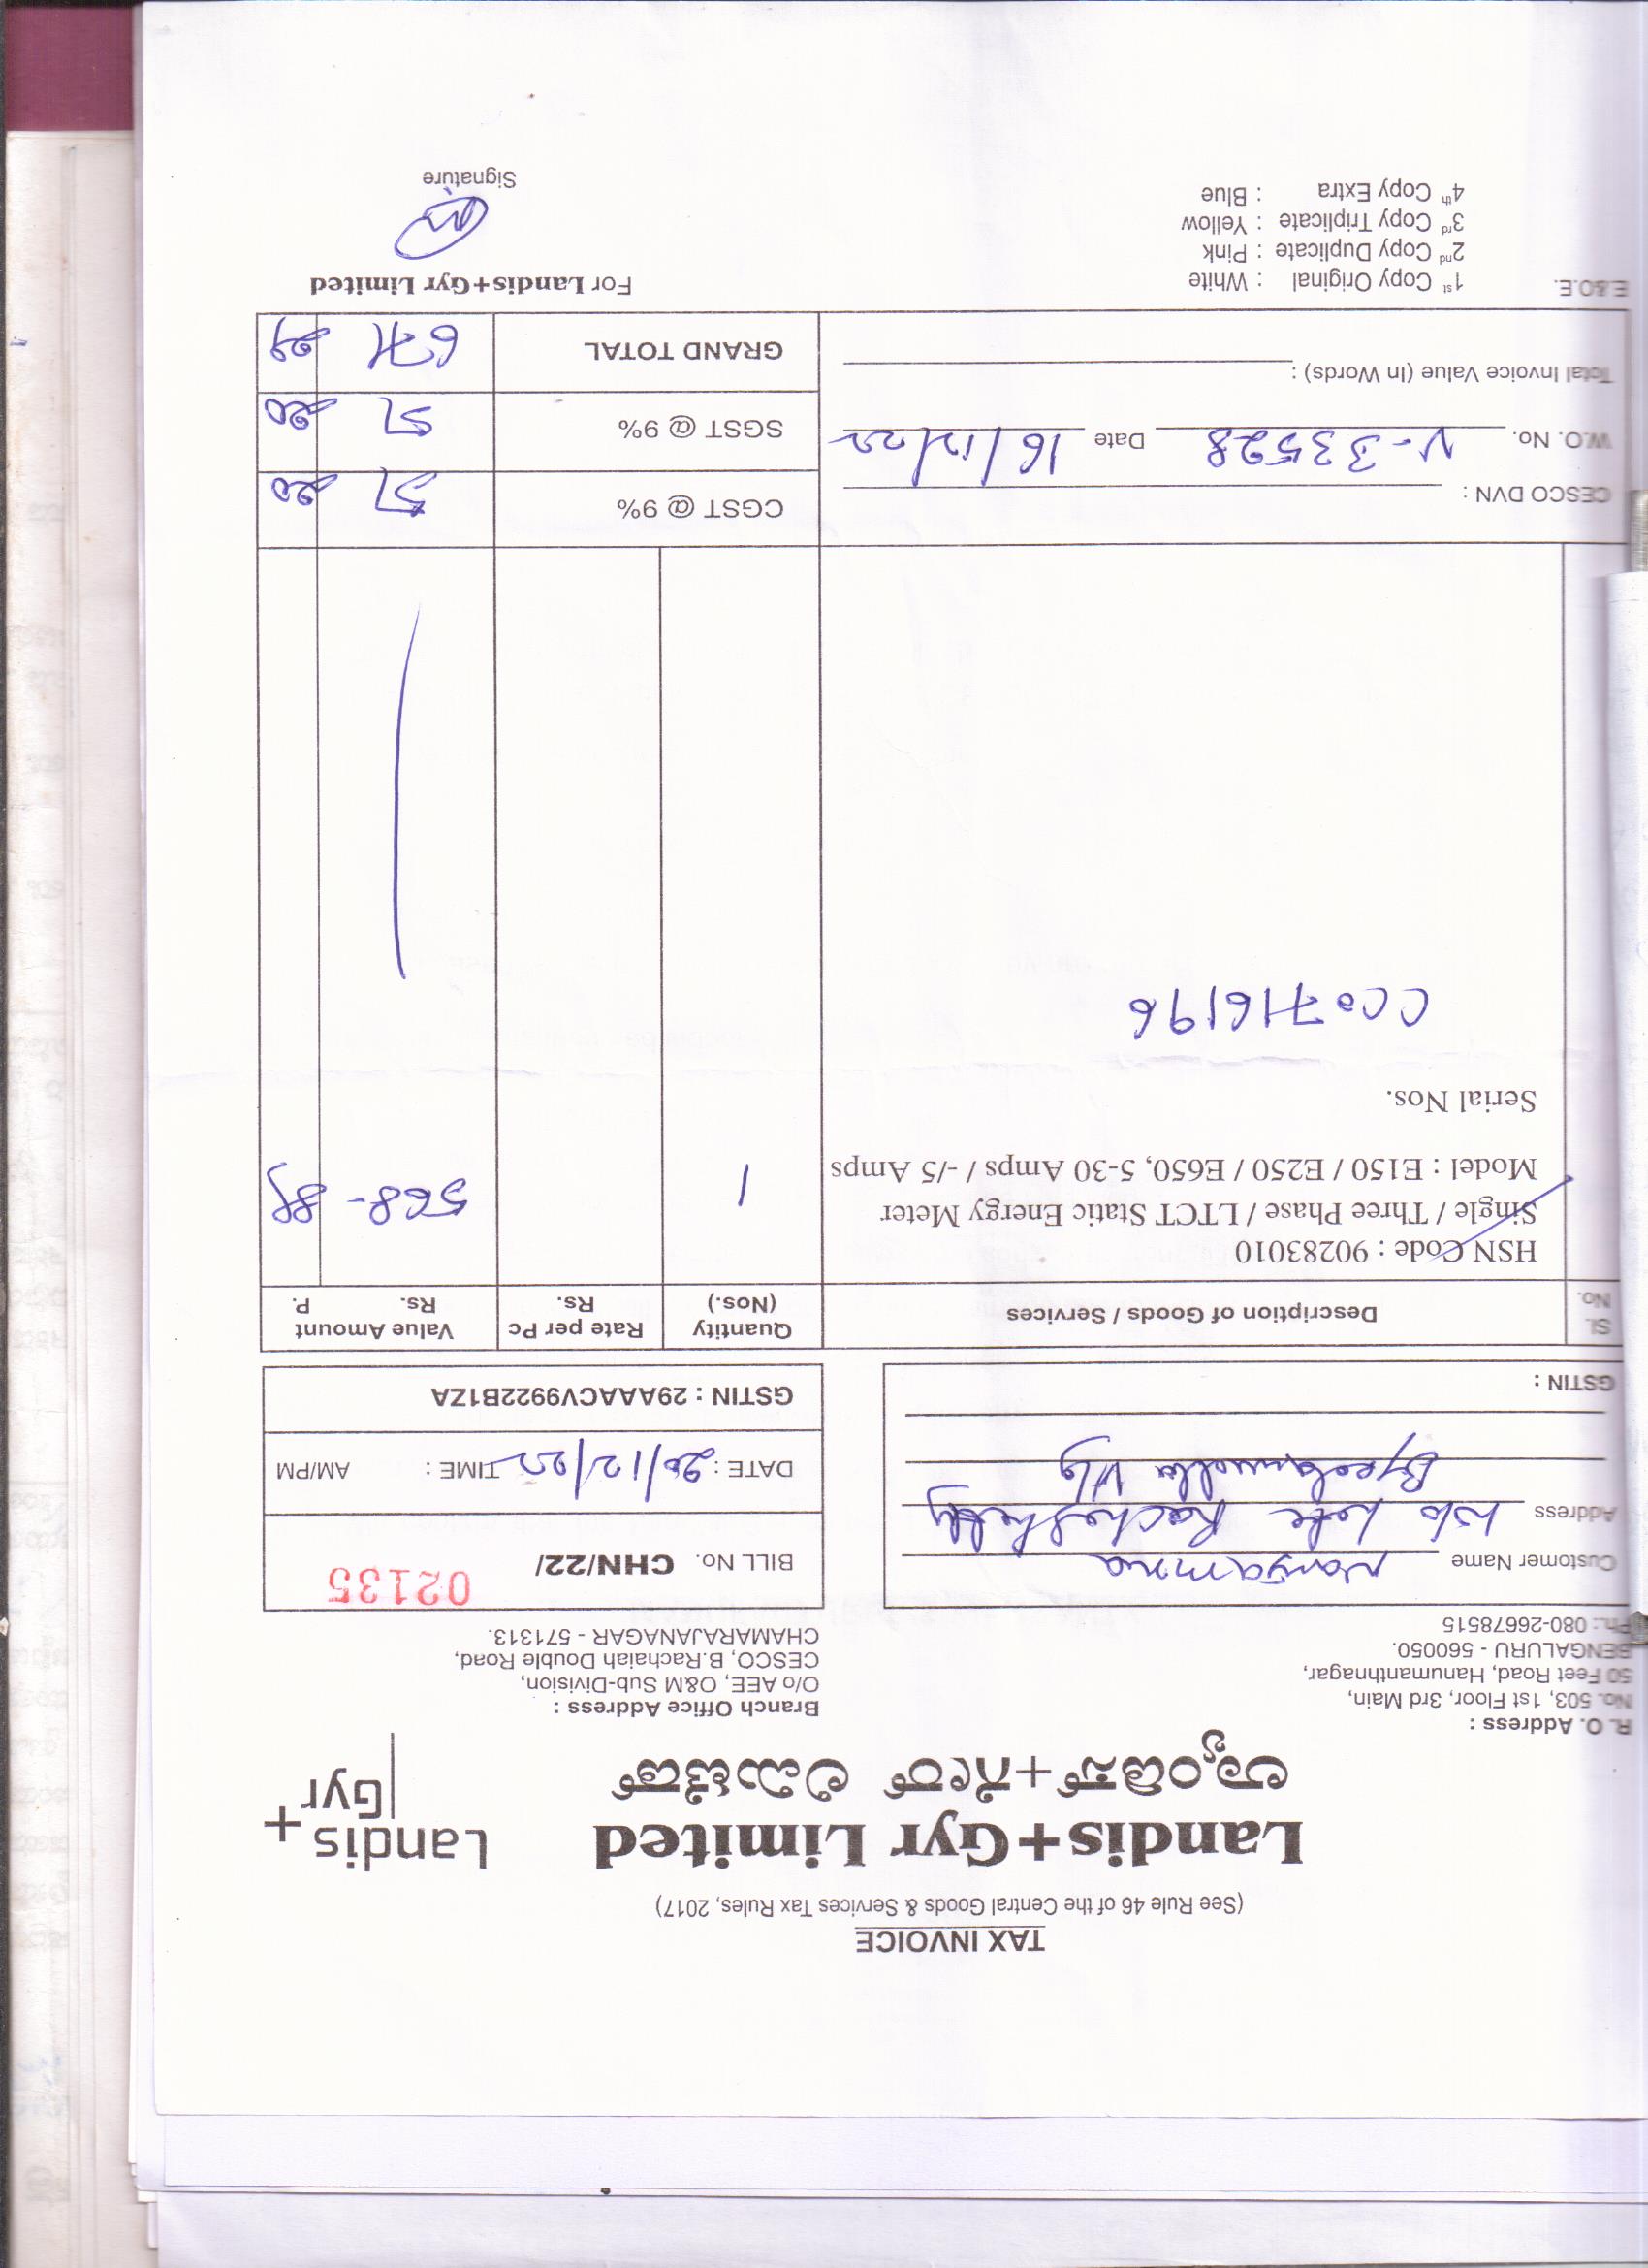 TAX INVOICE
(See Rule 46 of the Central Goods & Services Tax Rules, 2017)
Landis+Gyr Limited
ಲ್ಯಾಂಡಿಸ್+ಗೀರ್ ಲಿಮಿಟೆಡ್
Landis
Gyr +
R. O. Address :
No. 503, 1st Floor, 3rd Main,
50 Feet Road, Hanumanthnagar,
BENGALURU - 560050.
Ph.: 080-26678515
Branch Office Address :
O/o AEE, O&M Sub-Division,
CESCO, B.Rachaiah Double Road,
CHAMARAJANAGAR - 571313.
Customer Name Nanjamma
Address W/o Late
GSTIN :
BILL No. CHN/22/ 02135
DATE : 20/12/22 TIME : AM/PM
GSTIN : 29AAACV9922B1ZA
Sl. No. Description of Goods / Services Quantity (Nos.) Rate per Pc Rs. Value Amount Rs. P.
HSN Code : 90283010
Single / Three Phase / LTCT Static Energy Meter
Model : E150 / E250 / E650, 5-30 Amps / -/5 Amps
1 568- 89
Serial Nos.
CC0716196
CESCO DVN :
CGST @ 9% 51 20
W.O. No. N-33528 Date 16/12/22
SGST @ 9% 51 20
Total Invoice Value (In Words) :
GRAND TOTAL 671 29
E.&O.E.
1st Copy Original : White
2nd Copy Duplicate : Pink
3rd Copy Triplicate : Yellow
4th Copy Extra : Blue
For Landis+Gyr Limited
Signature